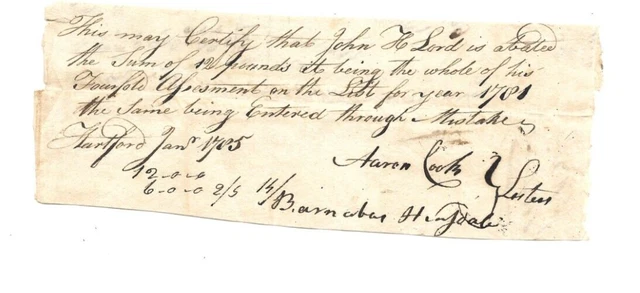 This may Certify that John H Lord is abated
the Sum of 12 pounds it being the whole of his
Fourfold Assesment on the List for year 1781
the Same being Entered through Mistake
Hartford Janr 1785
Aaron Cook
12-0-0
6-0-0 2/5
Barnabas Hinsdale
Listers